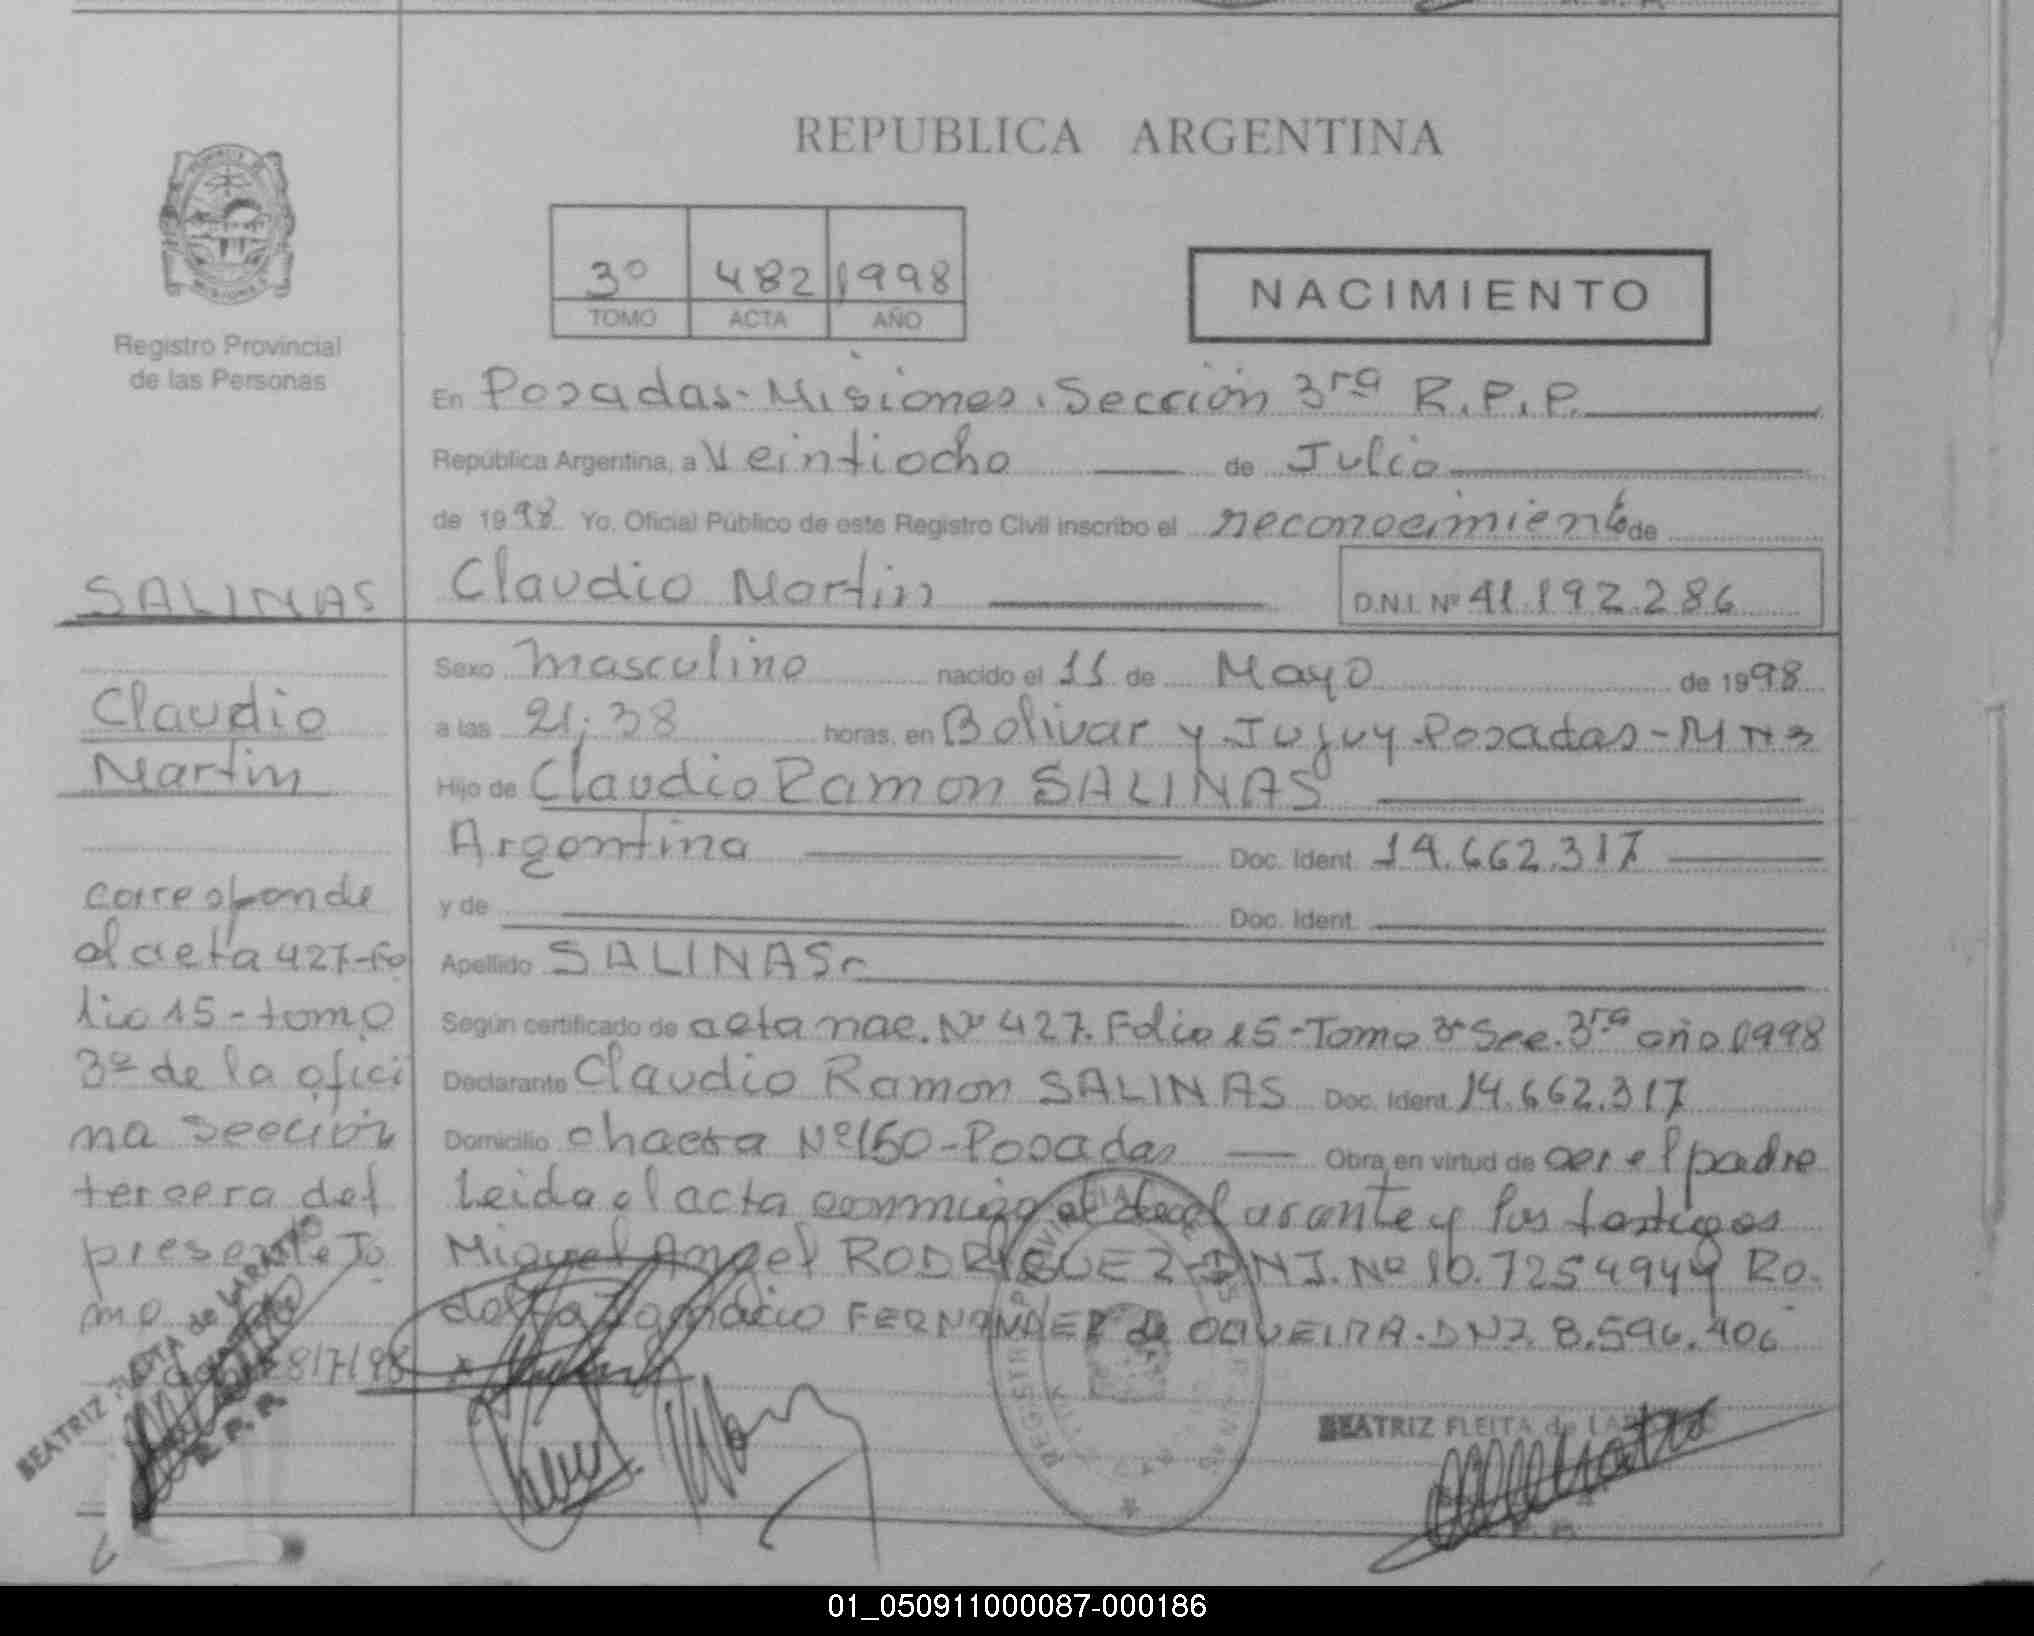 REPUBLICA ARGENTINA
3º 482 1998
TOMO ACTA AÑO
NACIMIENTO
Registro Provincial
de las Personas
En Posadas-Misiones. Sección 3ra R.P.P.
República Argentina, a Veintiocho de Julio
de 1998 Yo, Oficial Público de este Registro Civil inscribo el reconocimiento de
Claudio Martin D.N.I. Nº 41.192.286
SALINAS
Claudio
Martin
corresponde
al acta 427-fo
lio 15-tomo
3º de la ofici
na sección
tercera del
presente To
mo
28/7/98
BEATRIZ FLEITA de LARATRO
Sexo Masculino nacido el 11 de Mayo de 1998
a las 21:38 horas, en Bolivar y Jujuy-Posadas-Mnes
Hijo de Claudio Ramon SALINAS
Argentina Doc. Ident. 14.662.317
y de Doc. Ident.
Apellido SALINAS
Según certificado de acta nac. Nº 427. Folio 15-Tomo 3º Sec. 3ra año 1998
Declarante Claudio Ramon SALINAS Doc. Ident. 14.662.317
Domicilio chacra Nº150-Posadas Obra en virtud de ser el padre
Leida el acta conmigo el declarante y los testigos
Miguel Angel RODRIGUEZ-DNI. Nº 10.725494 y Ro
dolfo Ignacio FERNANDEZ de OLIVEIRA.DNI. 8.596.406
BEATRIZ FLEITA de
01_050911000087-000186